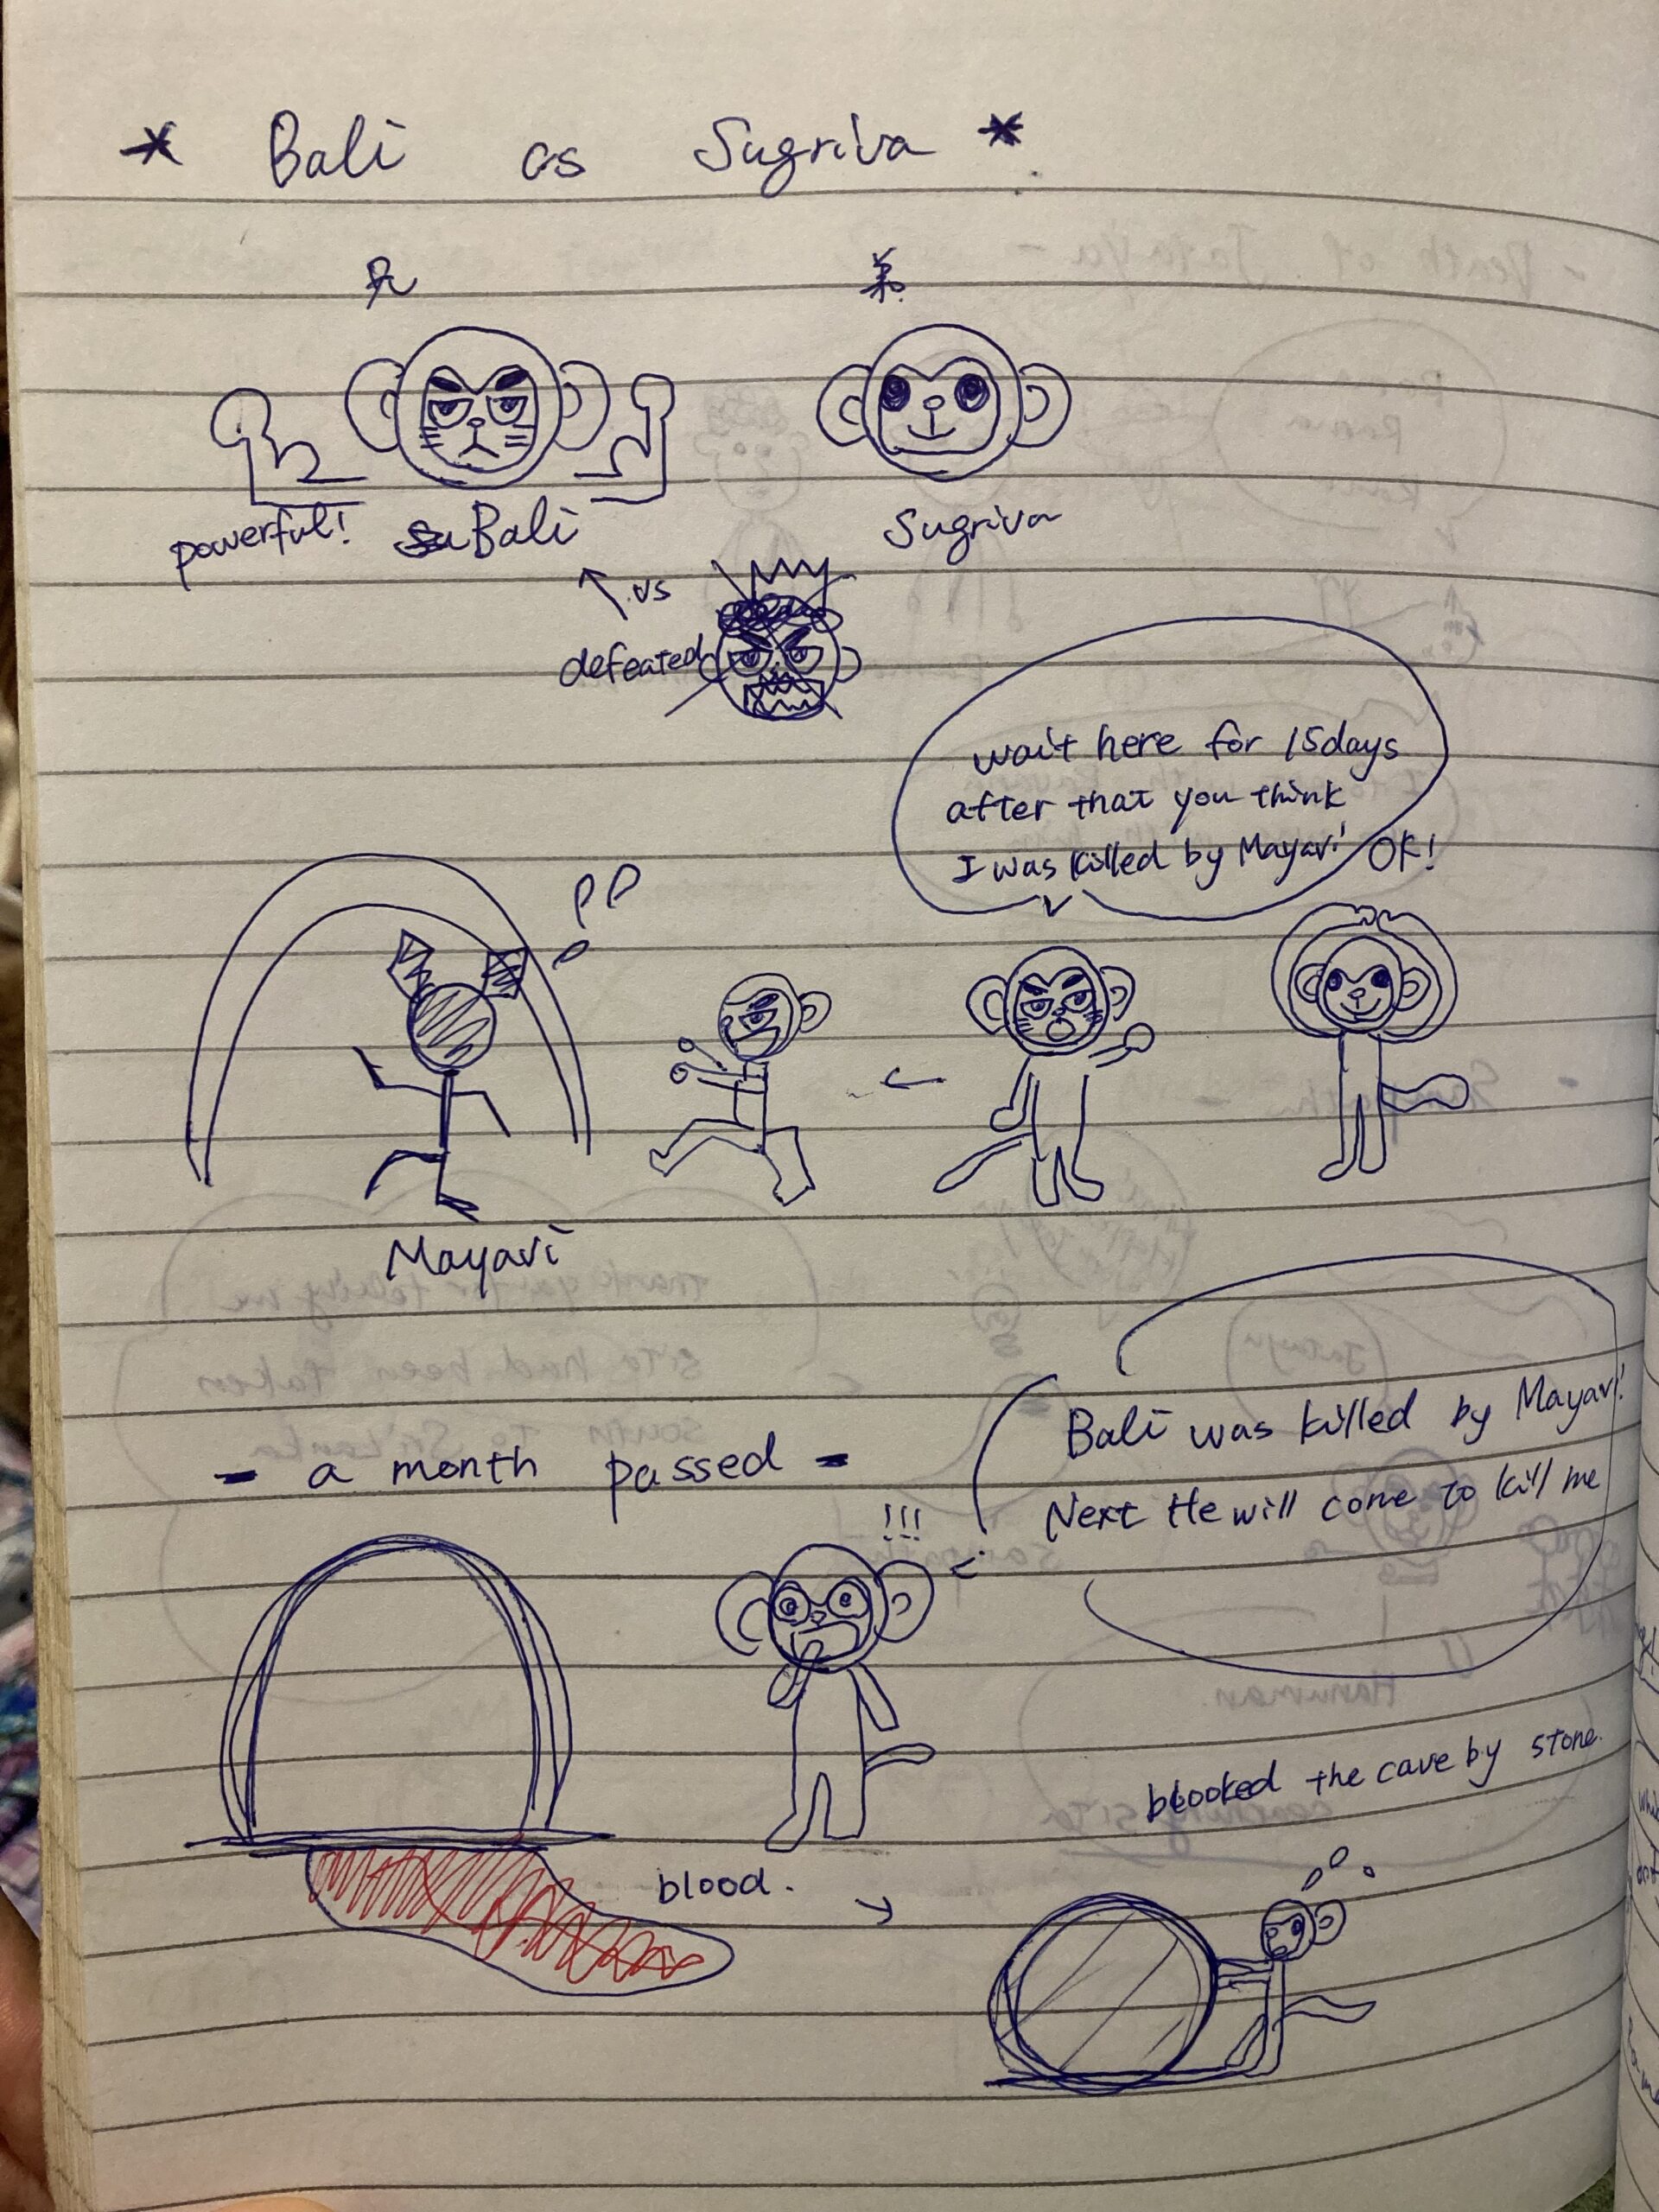 * Bali as Sugriva *
兄
弟
powerful!
Bali
Sugriva
vs
defeated
wait here for 15days
after that you think
I was killed by Mayavi
OK!
Mayavi
- a month passed -
Bali was killed by Mayavi!
Next He will come to kill me
!!!
blood.
blooked the cave by stone.